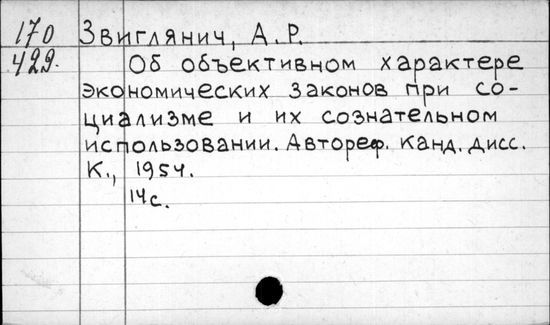 170 Звиглянич, А.Р.
429. Об объективном характере
экономических законов при со-
циализме и их сознательном
использовании. Автореф. канд. дисс.
К., 1954.
14с.